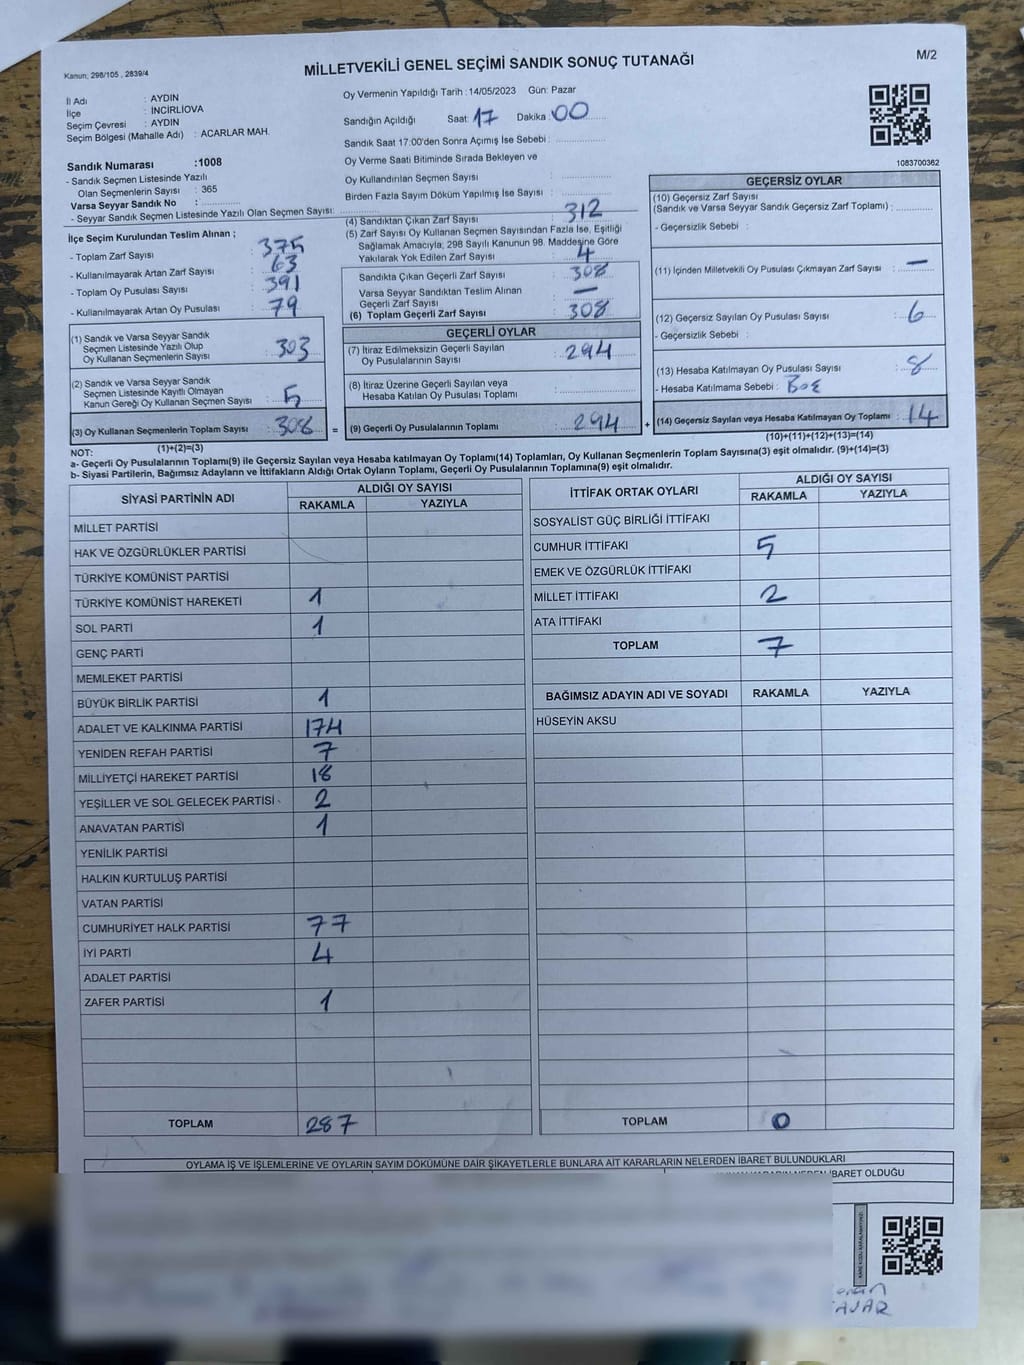 M/2
Kanun, 298/105 , 2839/4
MİLLETVEKİLİ GENEL SEÇİMİ SANDIK SONUÇ TUTANAĞI
İl Adı : AYDIN
İlçe : İNCİRLİOVA
Seçim Çevresi : AYDIN
Seçim Bölgesi (Mahalle Adı) : ACARLAR MAH.
Sandık Numarası :1008
- Sandık Seçmen Listesinde Yazılı
Olan Seçmenlerin Sayısı : 365
Varsa Seyyar Sandık No :
- Seyyar Sandık Seçmen Listesinde Yazılı Olan Seçmen Sayısı:
Oy Vermenin Yapıldığı Tarih : 14/05/2023 Gün: Pazar
Sandığın Açıldığı Saat: 17 Dakika : 00
Sandık Saat 17:00'den Sonra Açımış İse Sebebi :
Oy Verme Saati Bitiminde Sırada Bekleyen ve
Oy Kullandırılan Seçmen Sayısı :
Birden Fazla Sayım Döküm Yapılmış İse Sayısı :
1083700362
İlçe Seçim Kurulundan Teslim Alınan ;
- Toplam Zarf Sayısı : 375
- Kullanılmayarak Artan Zarf Sayısı : 63
- Toplam Oy Pusulası Sayısı : 391
- Kullanılmayarak Artan Oy Pusulası : 79
(1) Sandık ve Varsa Seyyar Sandık
Seçmen Listesinde Yazılı Olup
Oy Kullanan Seçmenlerin Sayısı : 303
(2) Sandık ve Varsa Seyyar Sandık
Seçmen Listesinde Kayıtlı Olmayan
Kanun Gereği Oy Kullanan Seçmen Sayısı : 5
(3) Oy Kullanan Seçmenlerin Toplam Sayısı : 308
(1)+(2)=(3)
(4) Sandıktan Çıkan Zarf Sayısı : 312
(5) Zarf Sayısı Oy Kullanan Seçmen Sayısından Fazla İse, Eşitliği
Sağlamak Amacıyla; 298 Sayılı Kanunun 98. Maddesine Göre
Yakılarak Yok Edilen Zarf Sayısı : 4
Sandıkta Çıkan Geçerli Zarf Sayısı : 308
Varsa Seyyar Sandıktan Teslim Alınan
Geçerli Zarf Sayısı : —
(6) Toplam Geçerli Zarf Sayısı : 308
GEÇERLİ OYLAR
(7) İtiraz Edilmeksizin Geçerli Sayılan
Oy Pusulalarının Sayısı : 294
(8) İtiraz Üzerine Geçerli Sayılan veya
Hesaba Katılan Oy Pusulası Toplamı :
= (9) Geçerli Oy Pusulalarının Toplamı : 294 +
GEÇERSİZ OYLAR
(10) Geçersiz Zarf Sayısı
(Sandık ve Varsa Seyyar Sandık Geçersiz Zarf Toplamı) :
- Geçersizlik Sebebi :
(11) İçinden Milletvekili Oy Pusulası Çıkmayan Zarf Sayısı : —
(12) Geçersiz Sayılan Oy Pusulası Sayısı : 6
- Geçersizlik Sebebi :
(13) Hesaba Katılmayan Oy Pusulası Sayısı : 8
- Hesaba Katılmama Sebebi : Boş
(14) Geçersiz Sayılan veya Hesaba Katılmayan Oy Toplamı : 14
(10)+(11)+(12)+(13)=(14)
NOT:
a- Geçerli Oy Pusulalarının Toplamı(9) ile Geçersiz Sayılan veya Hesaba katılmayan Oy Toplamı(14) Toplamları, Oy Kullanan Seçmenlerin Toplam Sayısına(3) eşit olmalıdır. (9)+(14)=(3)
b- Siyasi Partilerin, Bağımsız Adayların ve İttifakların Aldığı Ortak Oyların Toplamı, Geçerli Oy Pusulalarının Toplamına(9) eşit olmalıdır.
SİYASİ PARTİNİN ADI ALDIĞI OY SAYISI
RAKAMLA YAZIYLA
MİLLET PARTİSİ
HAK VE ÖZGÜRLÜKLER PARTİSİ
TÜRKİYE KOMÜNİST PARTİSİ
TÜRKİYE KOMÜNİST HAREKETİ 1
SOL PARTİ 1
GENÇ PARTİ
MEMLEKET PARTİSİ
BÜYÜK BİRLİK PARTİSİ 1
ADALET VE KALKINMA PARTİSİ 174
YENİDEN REFAH PARTİSİ 7
MİLLİYETÇİ HAREKET PARTİSİ 18
YEŞİLLER VE SOL GELECEK PARTİSİ 2
ANAVATAN PARTİSİ 1
YENİLİK PARTİSİ
HALKIN KURTULUŞ PARTİSİ
VATAN PARTİSİ
CUMHURİYET HALK PARTİSİ 77
İYİ PARTİ 4
ADALET PARTİSİ
ZAFER PARTİSİ 1
TOPLAM 287
İTTİFAK ORTAK OYLARI ALDIĞI OY SAYISI
RAKAMLA YAZIYLA
SOSYALİST GÜÇ BİRLİĞİ İTTİFAKI
CUMHUR İTTİFAKI 5
EMEK VE ÖZGÜRLÜK İTTİFAKI
MİLLET İTTİFAKI 2
ATA İTTİFAKI
TOPLAM 7
BAĞIMSIZ ADAYIN ADI VE SOYADI RAKAMLA YAZIYLA
HÜSEYİN AKSU
TOPLAM 0
OYLAMA İŞ VE İŞLEMLERİNE VE OYLARIN SAYIM DÖKÜMÜNE DAİR ŞİKAYETLERLE BUNLARA AİT KARARLARIN NELERDEN İBARET BULUNDUKLARI
İBARET OLDUĞU